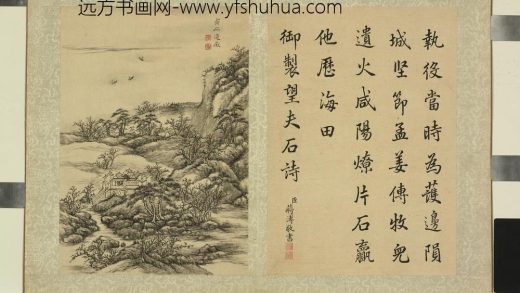 远方书画网-www.yfshuhua.com
執役當時為護邊隕
城堅節孟姜傳牧兒
遺火咸陽燎片石贏
他歷海田
御製望夫石詩
臣蔣溥敬書